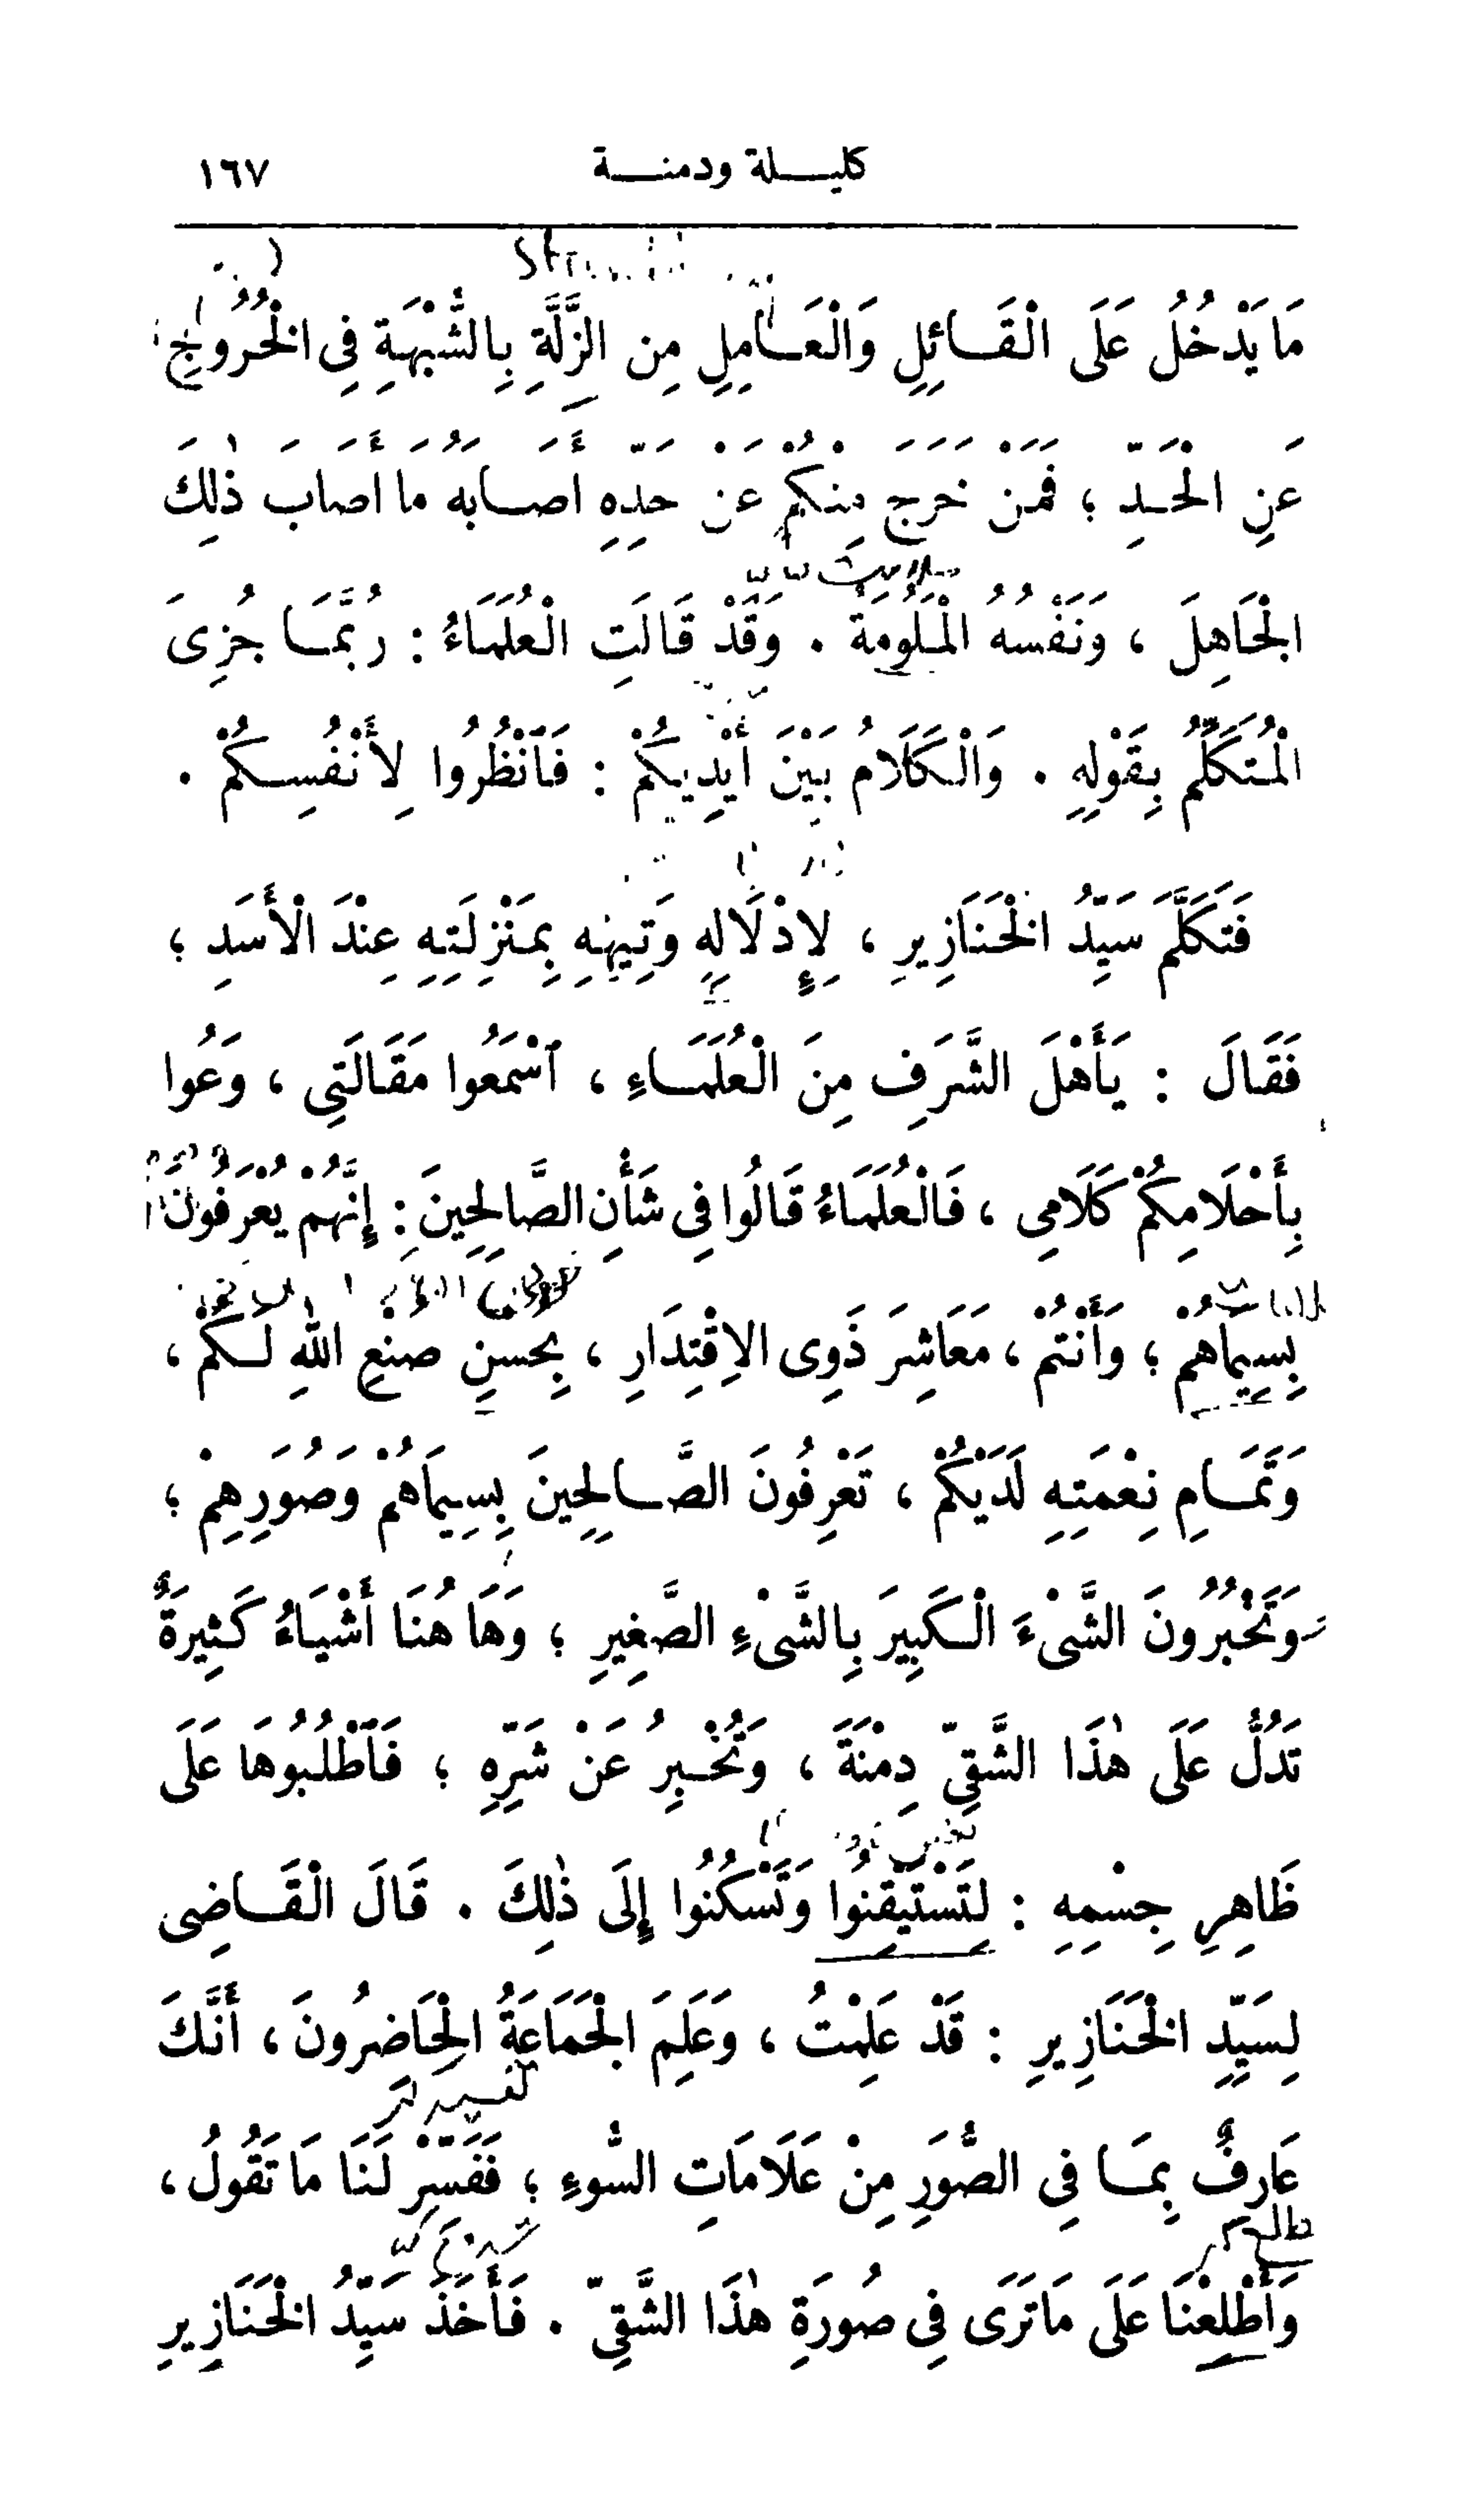 كليلة ودمنة ١٦٧
مَا يَدْخُلُ عَلَى الْقَائِلِ وَالْعَامِلِ مِنَ الزَّلَّةِ بِالشُّبْهَةِ فِى الْخُرُوجِ
عَنِ الْحَدِّ ؛ فَمَنْ خَرَجَ مِنْكُمْ عَنْ حَدِّهِ أَصَابَهُ مَا أَصَابَ ذٰلِكَ
الْجَاهِلَ ، وَنَفْسُهُ الْمَلُومَةُ . وَقَدْ قَالَتِ الْعُلَمَاءُ : رُبَّمَا جُزِىَ
الْمُتَكَلِّمُ بِقَوْلِهِ . وَالْكَلَامُ بَيْنَ أَيْدِيكُمْ : فَٱنْظُرُوا لِأَنْفُسِكُمْ .
فَتَكَلَّمَ سَيِّدُ الْخَنَازِيرِ ، لِإِدْلَالِهِ وَتِيهِهِ بِمَنْزِلَتِهِ عِنْدَ الْأَسَدِ ؛
فَقَالَ : يَأَهْلَ الشَّرَفِ مِنَ الْعُلَمَاءِ ، ٱسْمَعُوا مَقَالَتِى ، وَعُوا
بِأَحْلَامِكُمْ كَلَامِى ، فَالْعُلَمَاءُ قَالُوا فِى شَأْنِ الصَّالِحِينَ : إِنَّهُمْ يُعْرَفُونَ
بِسِيمَاهُمْ ؛ وَأَنْتُمْ ، مَعَاشِرَ ذَوِى الِاقْتِدَارِ ، بِحُسْنِ صُنْعِ اللهِ لَكُمْ ،
وَتَمَامِ نِعْمَتِهِ لَدَيْكُمْ ، تَعْرِفُونَ الصَّالِحِينَ بِسِيمَاهُمْ وَصُوَرِهِمْ ؛
وَتَخْبُرُونَ الشَّىْءَ الْكَبِيرَ بِالشَّىْءِ الصَّغِيرِ ؛ وَهَا هُنَا أَشْيَاءُ كَثِيرَةٌ
تَدُلُّ عَلَى هٰذَا الشَّقِىِّ دِمْنَةَ ، وَتُخْبِرُ عَنْ شَرِّهِ ؛ فَٱطْلُبُوهَا عَلَى
ظَاهِرِ جِسْمِهِ : لِتَسْتَيْقِنُوا وَتَسْكُنُوا إِلَى ذٰلِكَ . قَالَ الْقَاضِى
لِسَيِّدِ الْخَنَازِيرِ : قَدْ عَلِمْتُ ، وَعَلِمَ الْجَمَاعَةُ الْحَاضِرُونَ ، أَنَّكَ
عَارِفٌ بِمَا فِى الصُّوَرِ مِنْ عَلَامَاتِ السُّوءِ ؛ فَفَسِّرْ لَنَا مَا تَقُولُ ،
وَأَطْلِعْنَا عَلَى مَا تَرَى فِى صُورَةِ هٰذَا الشَّقِىِّ . فَأَخَذَ سَيِّدُ الْخَنَازِيرِ